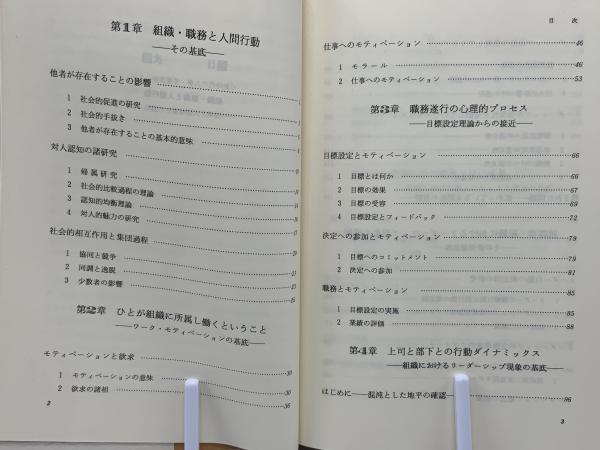 第1章 組織・職務と人間行動
——その基底——
他者が存在することの影響
1 社会的促進の研究
2 社会的手抜き
3 他者が存在することの基本的意味
対人認知の諸研究
1 帰属研究
2 社会的比較過程の理論
3 認知的均衡理論
4 対人的魅力の研究
社会的相互作用と集団過程
1 協同と競争
2 同調と逸脱
3 少数者の影響
第2章 ひとが組織に所属し働くということ
——ワーク・モティベーションの基底——
モティベーションと欲求
1 モティベーションの意味 30
2 欲求の諸相 36
2
目 次
仕事へのモティベーション 46
1 モラール 46
2 仕事へのモティベーション 53
第3章 職務遂行の心理的プロセス
——目標設定理論からの接近——
目標設定とモティベーション 66
1 目標とは何か 66
2 目標の効果 67
3 目標の受容 69
4 目標設定とフィードバック 72
決定への参加とモティベーション 79
1 目標へのコミットメント 79
2 決定への参加 81
職務とモティベーション 85
1 目標設定の実施 85
2 業績の評価 88
第4章 上司と部下との行動ダイナミックス
——組織におけるリーダーシップ現象の基底——
はじめに——混沌とした地平の確認—— 96
3